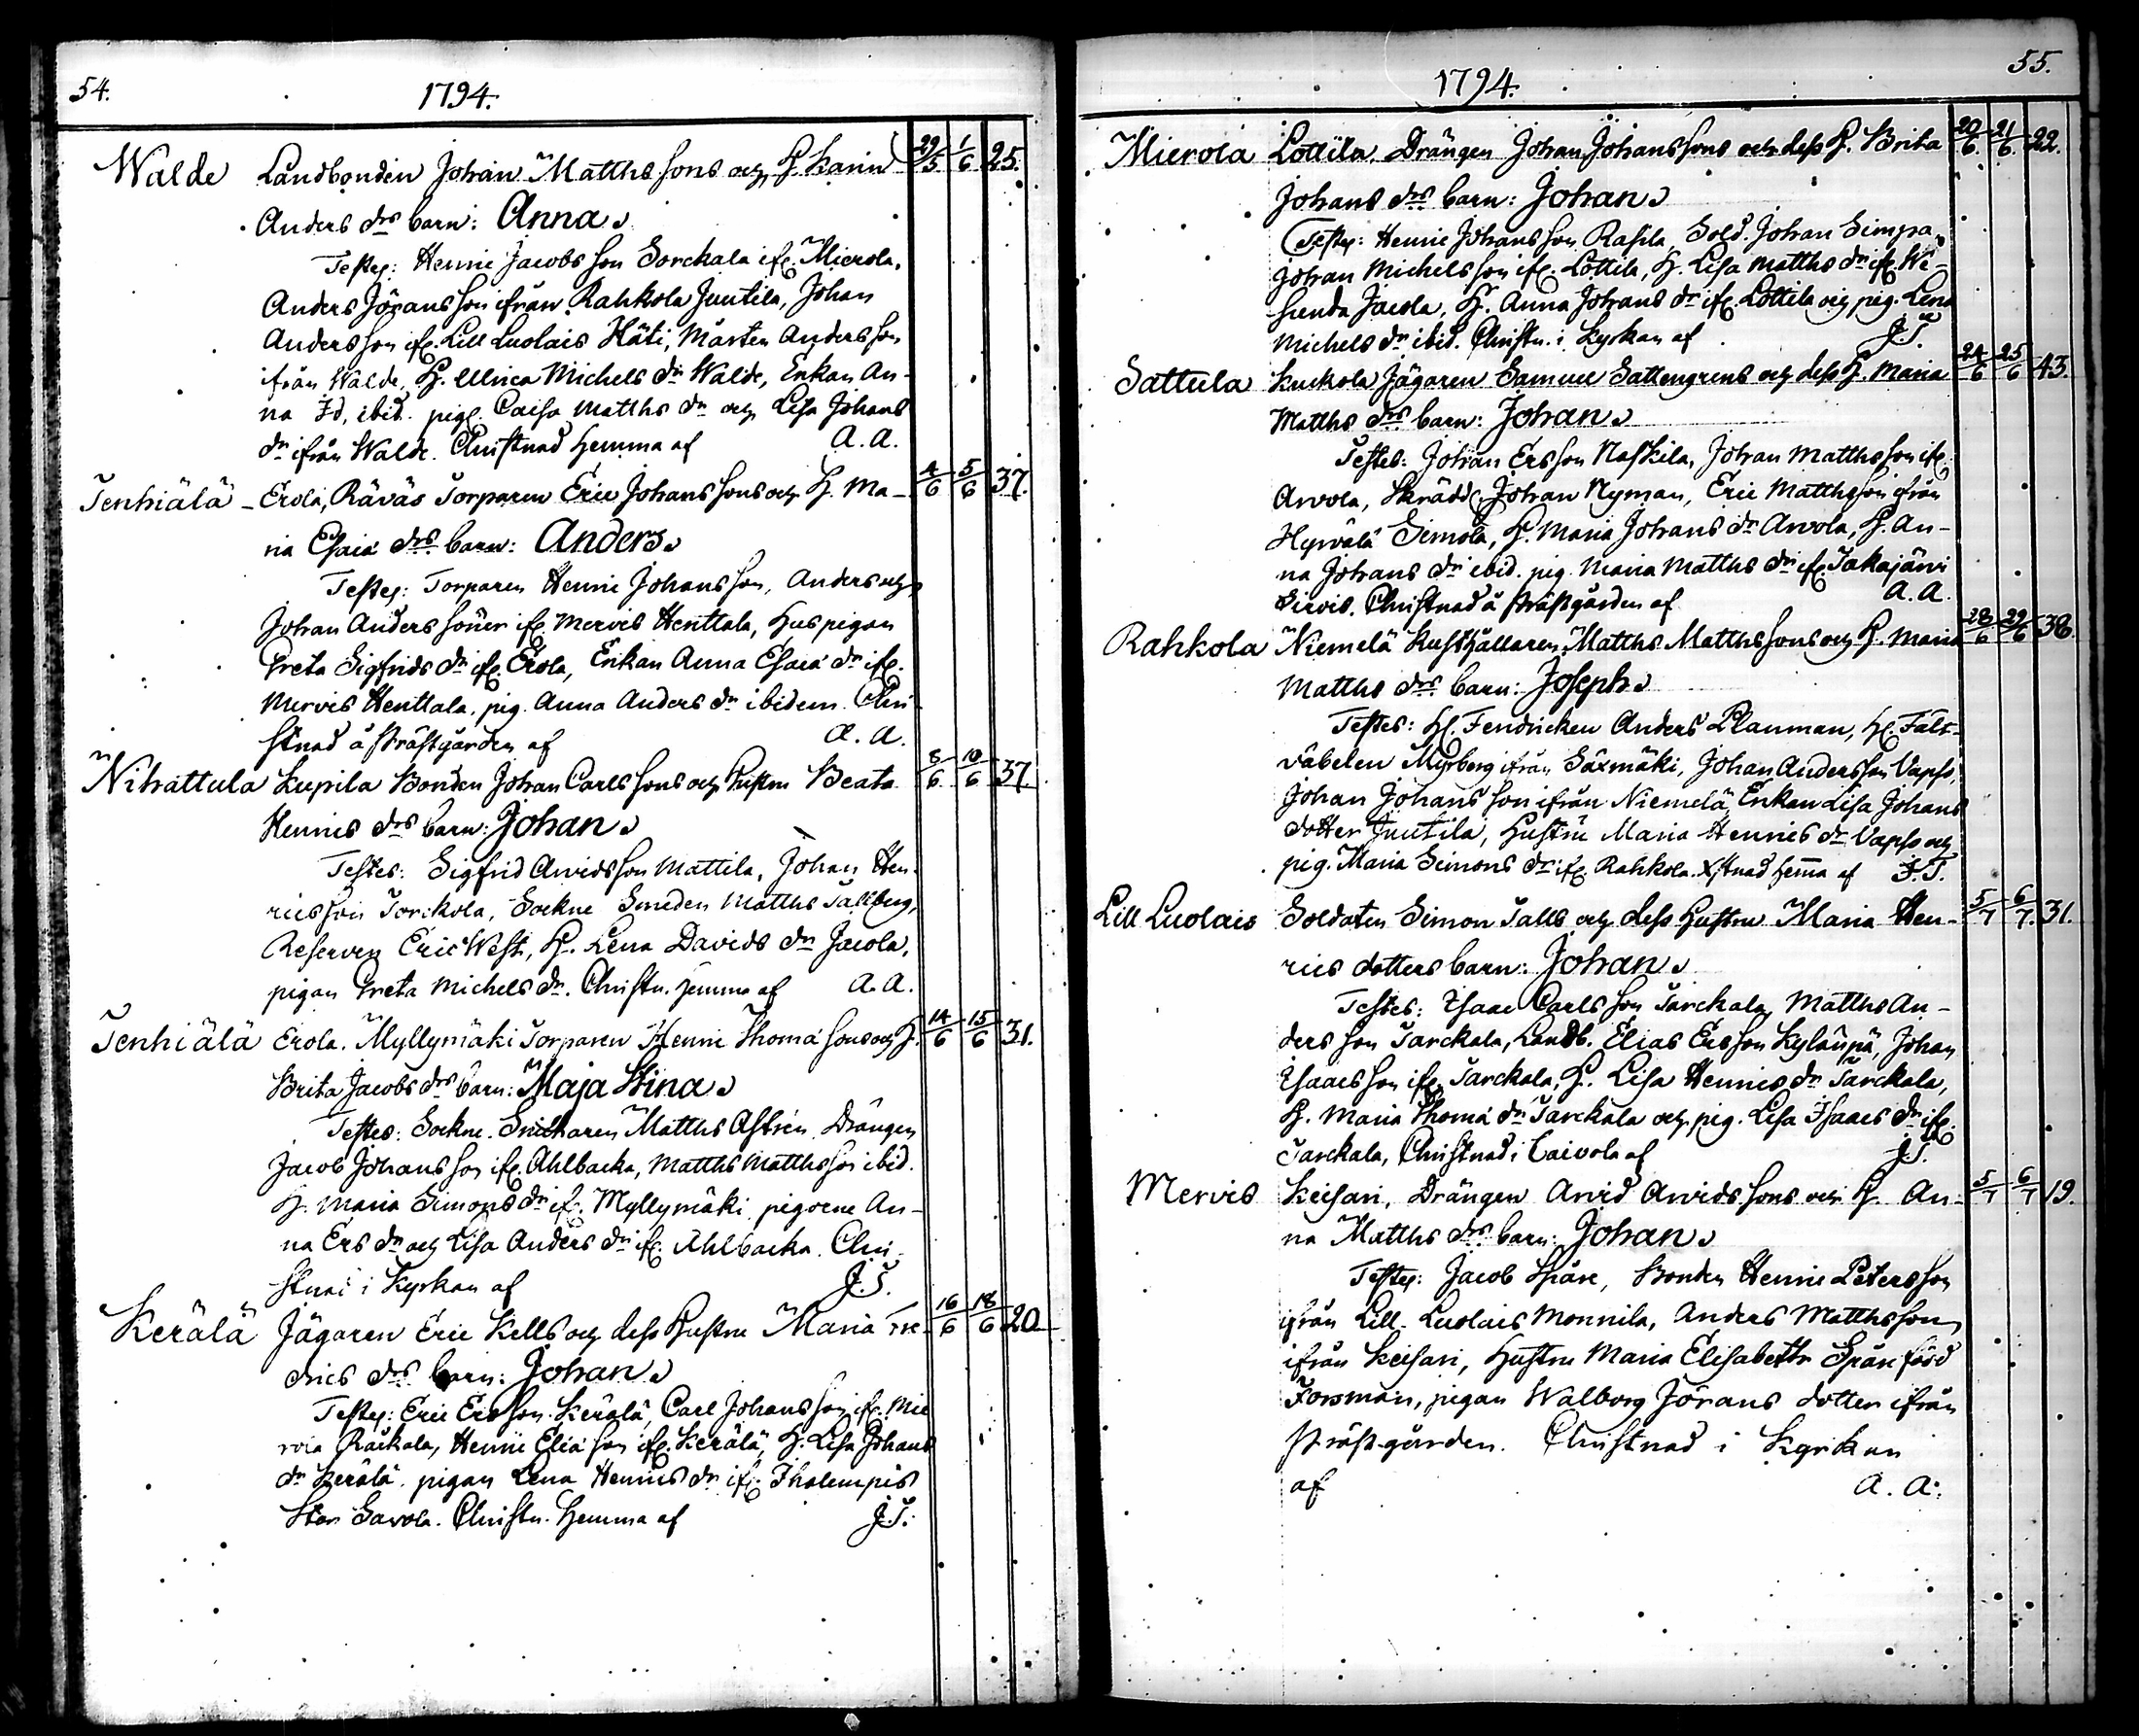 54.
1794.
Walde Landbonden Johan Matths sons och H. Karin 29/5 1/6 25.
Anders drs barn: Anna
Testes: Henric Jacobs son Sorckala ifr. Mierola,
Anders Jörans son ifrån Rahkola Juutila, Johan
Anders son ifr. Lill Luolais Häti, Mårten Anders son
ifrån Walde, H. Ullrica Michels dr Walde, Enkan An-
na Id. ibid. pig. Caisa Matths dr och Lisa Johans
dr ifrån Walde. Christnad hemma af A. A.
Tenhiälä - Erola, Räväs Torparen Eric Johans sons och H. Ma- 4/6 5/6 37.
ria Esaiæ drs barn: Anders
Testes: Torparen Henric Johans son, Anders och
Johan Anders söner ifr. Mervis Henttala, Huspigan
Greta Sigfrids dr ifr. Erola, Enkan Anna Esaiæ dr ifr.
Mervis Henttala, pig. Anna Anders dr ibidem. Chri-
stnad å Prästgården af A. A.
Nihattula Kupila Bonden Johan Carls sons och Hustru Beata 8/6 10/6 37.
Henrics drs barn: Johan
Testes: Sigfrid Arvids son Mattila, Johan Hen-
rics son Torckola, Sockne Smeden Matths Tallberg,
Reserven Eric West, H. Lena Davids dr Jacola,
pigan Greta Michels dr. Christn. hemma af A. A.
Tenhiälä Erola. Myllymäki Torparen Henric Thomæ sons och H. 14/6 15/6 31.
Brita Jacobs drs barn: Maja Stina
Testes: Sockne Snickaren Matths Astrén Drängen
Jacob Johans son ifr. Ahlbacka, Matths Matths son ibid.
H. Maria Simons dr ifr. Myllymäki pigorne An-
na Ers dr och Lisa Anders dr ifr. Ahlbacka. Chri-
stnad i Kyrkan af J. T.
Kerälä Jägaren Eric Kells och dess Hustru Maria Fre- 16/6 18/6 20
drics drs barn: Johan
Testes: Eric Ers son Kerälä, Carl Johans son ifr. Mie
rola Räckala, Henric Eliæ son ifr. Kerälä, H. Lisa Johans
dr Kerälä, pigan Lena Henrics dr ifr. Ihalempis
Stor Savola. Christn. Hemma af J. T.
55.
1794.
Mierola Lottila, Drängen Johan Johans sons och dess H. Brita 20/6 21/6 22.
Johans drs barn: Johan
Testes: Henric Johans son Rasila, Sold. Johan Simpa,
Johan Michels son ifr. Lottila, H. Lisa Matths dr ifr. We-
henda Jacola, H. Anna Johans dr ifr. Lottila och pig. Lena
Michels dr ibid. Christn. i Kyrkan af J. T.
Sattula Kuckola Jägaren Samuel Sattengrens och dess H. Maria 24/6 25/6 43.
Matths drs barn: Johan
Testes: Johan Ers son Naskila, Johan Matths son ifr.
Arvola, Skrädd. Johan Nyman, Eric Matths son ifrån
Hyrvälä Simola, H. Maria Johans dr Arvola, H. An-
na Johans dr ibid. pig. Maria Matths dr ifr. Takajärvi
Sirvis. Christnad å Prästgården af A. A.
Rahkola Niemelä Rusthållaren Matths Matths sons och H. Maria 28/6 29/6 38.
Matths drs barn: Joseph
Testes: H. Fendricken Anders Planman, H. Fält-
väbelen Myrberg ifrån Säxmäki, Johan Anders son Vapso,
Johan Johans son ifrån Niemelä, Enkan Lisa Johans
dotter Juutila, Hustru Maria Henrics dr Vapso och
pig. Maria Simons dr ifr. Rahkola. Xstnad hemma af J. T.
Lill Luolais Soldaten Simon Talls och dess Hustru Maria Hen- 5/7 6/7 31.
rics dotters barn: Johan
Testes: Isaac Carls son Tarckala, Matths An-
ders son Tarckala, Landb. Elias Ers son Kylänpä, Johan
Isaacs son ifr. Tarckala, H. Lisa Henrics dr Tarckala,
H. Maria Thomæ dr Tarckala och pig. Lisa Isaacs dr ifr.
Tarckala, Christnad i Caivola af J. T.
Mervis Keisari, Drängen Arvid Arvids sons och H. An- 5/7 6/7 19.
na Matths drs barn: Johan
Testes: Jacob Spåre, Bonden Henric Peters son
ifrån Lill Luolais Monnila, Anders Matths son
ifrån Keisari, Hustru Maria Elisabeth Spåre född
Forsman, pigan Walborg Jörans dotter ifrån
Prästgården. Christnad i Kyrkan
af A. A.